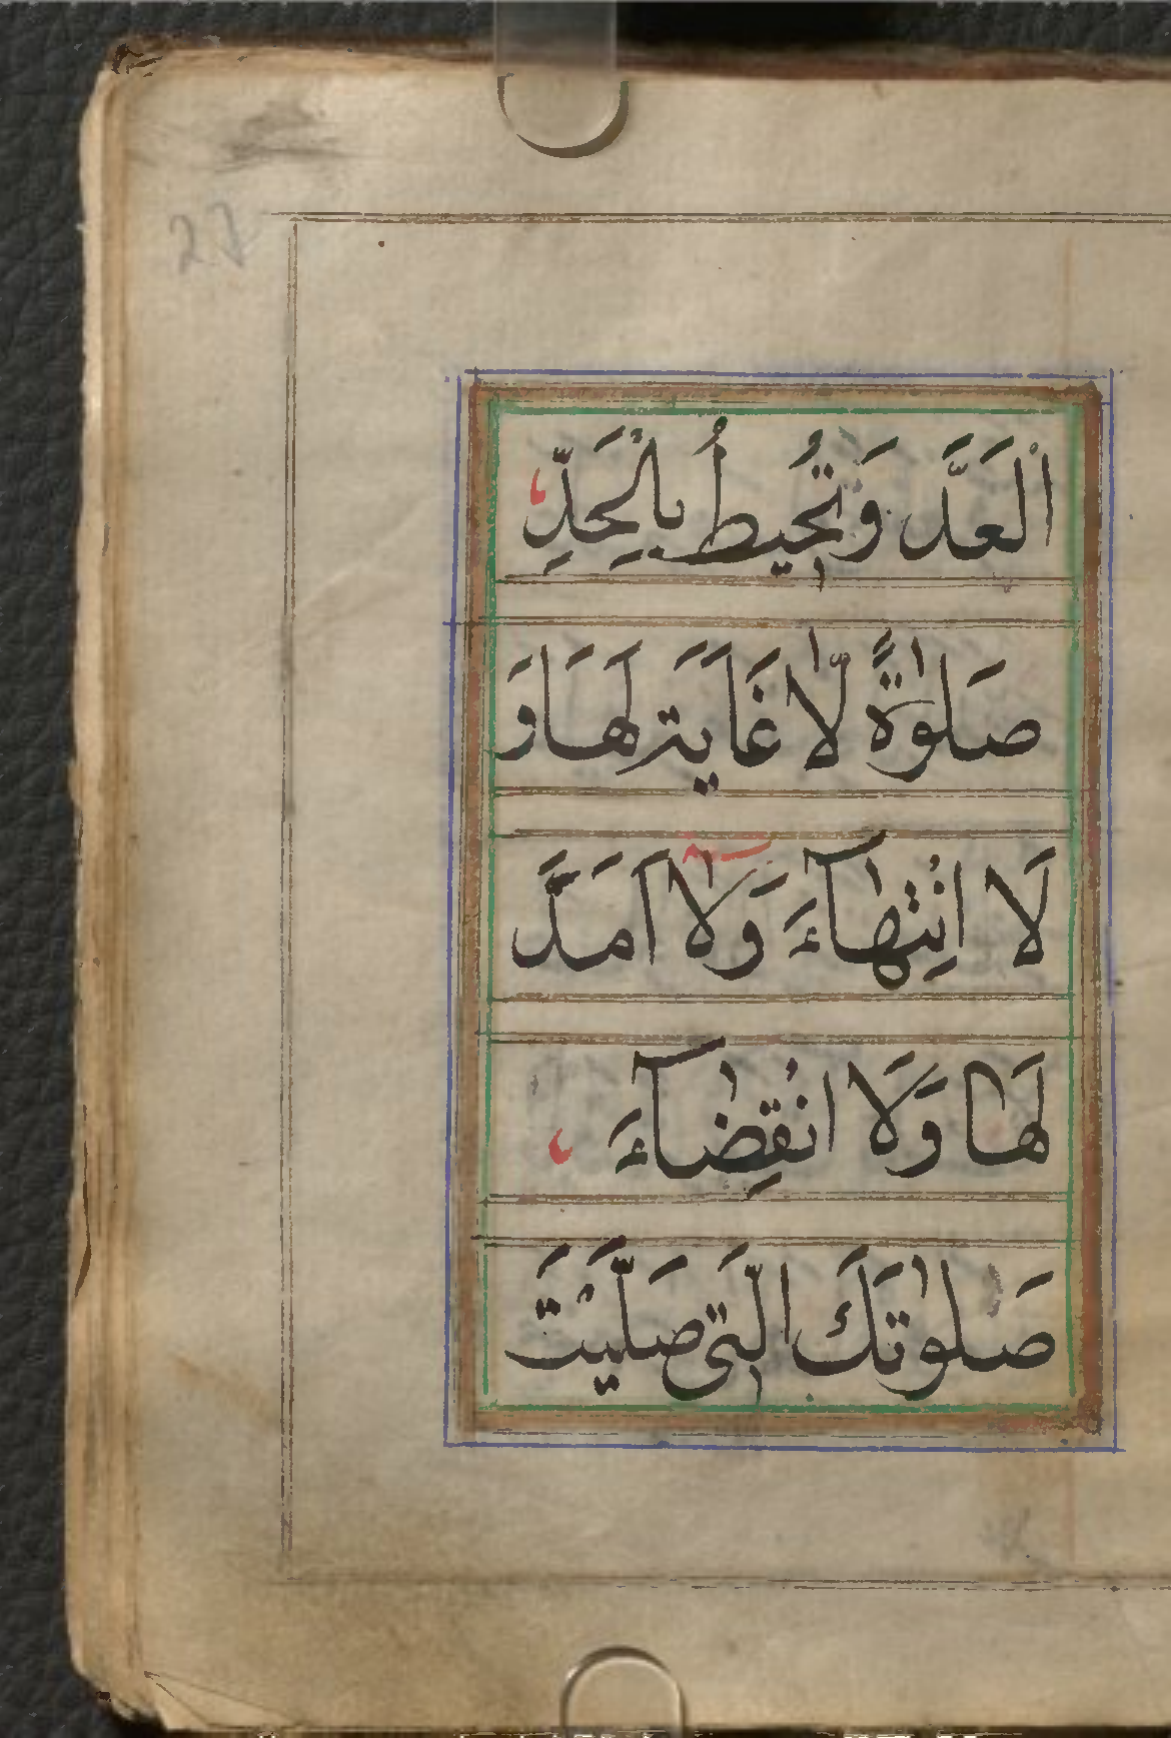 27
الْعَدَّ وَتُحيطُ بِالْحَدِّ
صَلٰوةً لّا غَايَةَ لَهَا وَ
لَا انْتِهٰآءَ وَلا اَمَدَّ
لَهٰا وَلَا انْقِضٰآءَ
صَلٰوتَكَ الَّتي صَلَّيْتَ